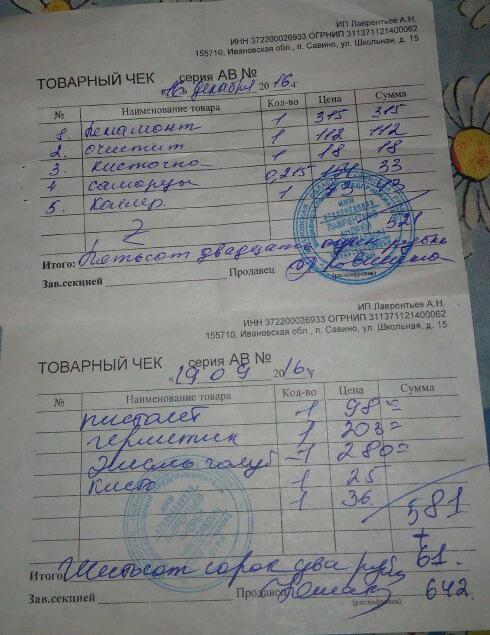 ИП Лаврентьев А.Н.
ИНН 372200026933 ОГРНИП 311371121400062
155710, Ивановская обл., п. Савино, ул. Школьная, д. 15
ТОВАРНЫЙ ЧЕК серия АВ №
«16» декабря 2016 г
№ Наименование товара Кол-во Цена Сумма
1. 1 315 315
2. очистит 1 112 112
3. кисточка 1 18 18
4 саморезы 0,215 154 33
5. Колер. 1
528
Итого: Пятьсот двадцать рубль
Зав.секцией Продавец
(расшифровка)
ИП Лаврентьев А.Н.
ИНН 372200026933 ОГРНИП 311371121400062
155710, Ивановская обл., п. Савино, ул. Школьная, д. 15
ТОВАРНЫЙ ЧЕК серия АВ №
«19 09 2016 г
№ Наименование товара Кол-во Цена Сумма
пистолет 1 98=
герметик 1 203=
Эмаль голуб 1 280=
Кисть 1 25
1 36 581
+
61.
Итого Шестьсот сорок два рубля
642
Зав.секцией Продавец
(расшифровка)